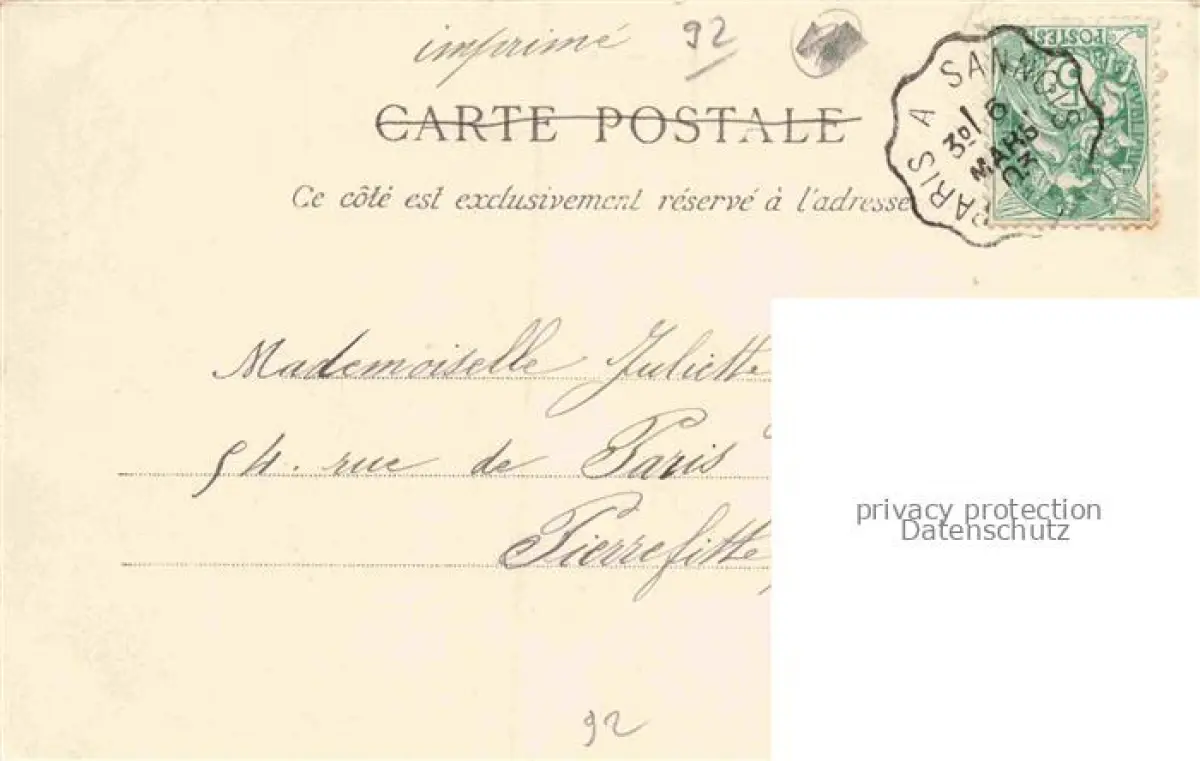 imprimé 92
CARTE POSTALE
Ce côté est exclusivement réservé à l'adresse
PARIS A SANNOIS
3º/ 6
MARS
03
POSTES
5
Mademoiselle Juliette
54. rue de Paris
Pierrefitte
privacy protection
Datenschutz
92